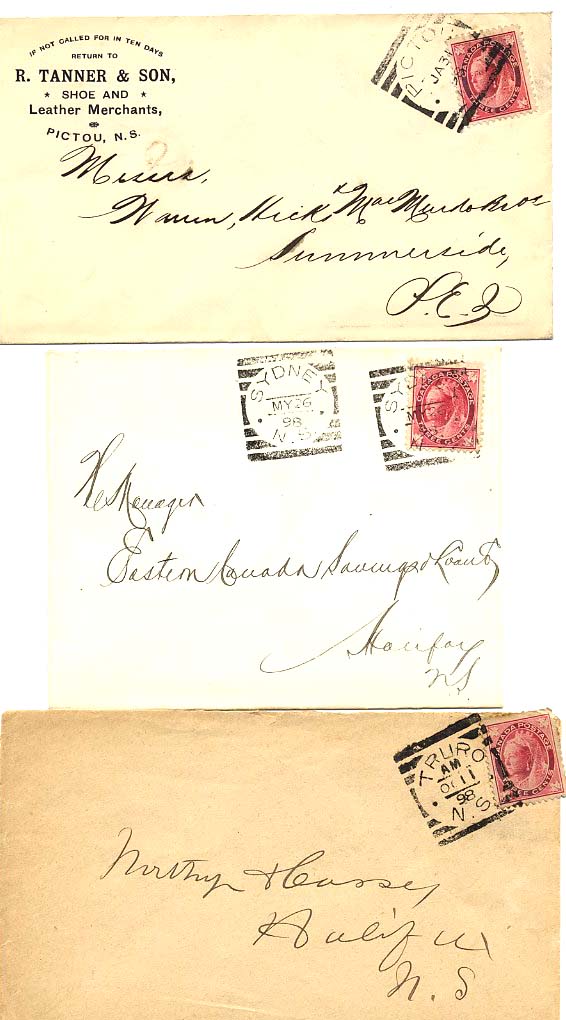 IF NOT CALLED FOR IN TEN DAYS
RETURN TO
R. TANNER & SON,
SHOE AND
Leather Merchants,
PICTOU, N.S.
PICTOU
JA 31
98
CANADA POSTAGE
THREE CENTS
Messrs.
Summerside,
P.E.I
SYDNEY
MY 26
98
N.S.
SYDNEY
CANADA POSTAGE
THREE CENTS
The Manager
Eastern Canada Savings & Loan Co
Halifax
N.S.
TRURO
AM
OC 11
98
N.S.
CANADA POSTAGE
THREE CENTS
Halifax
N.S